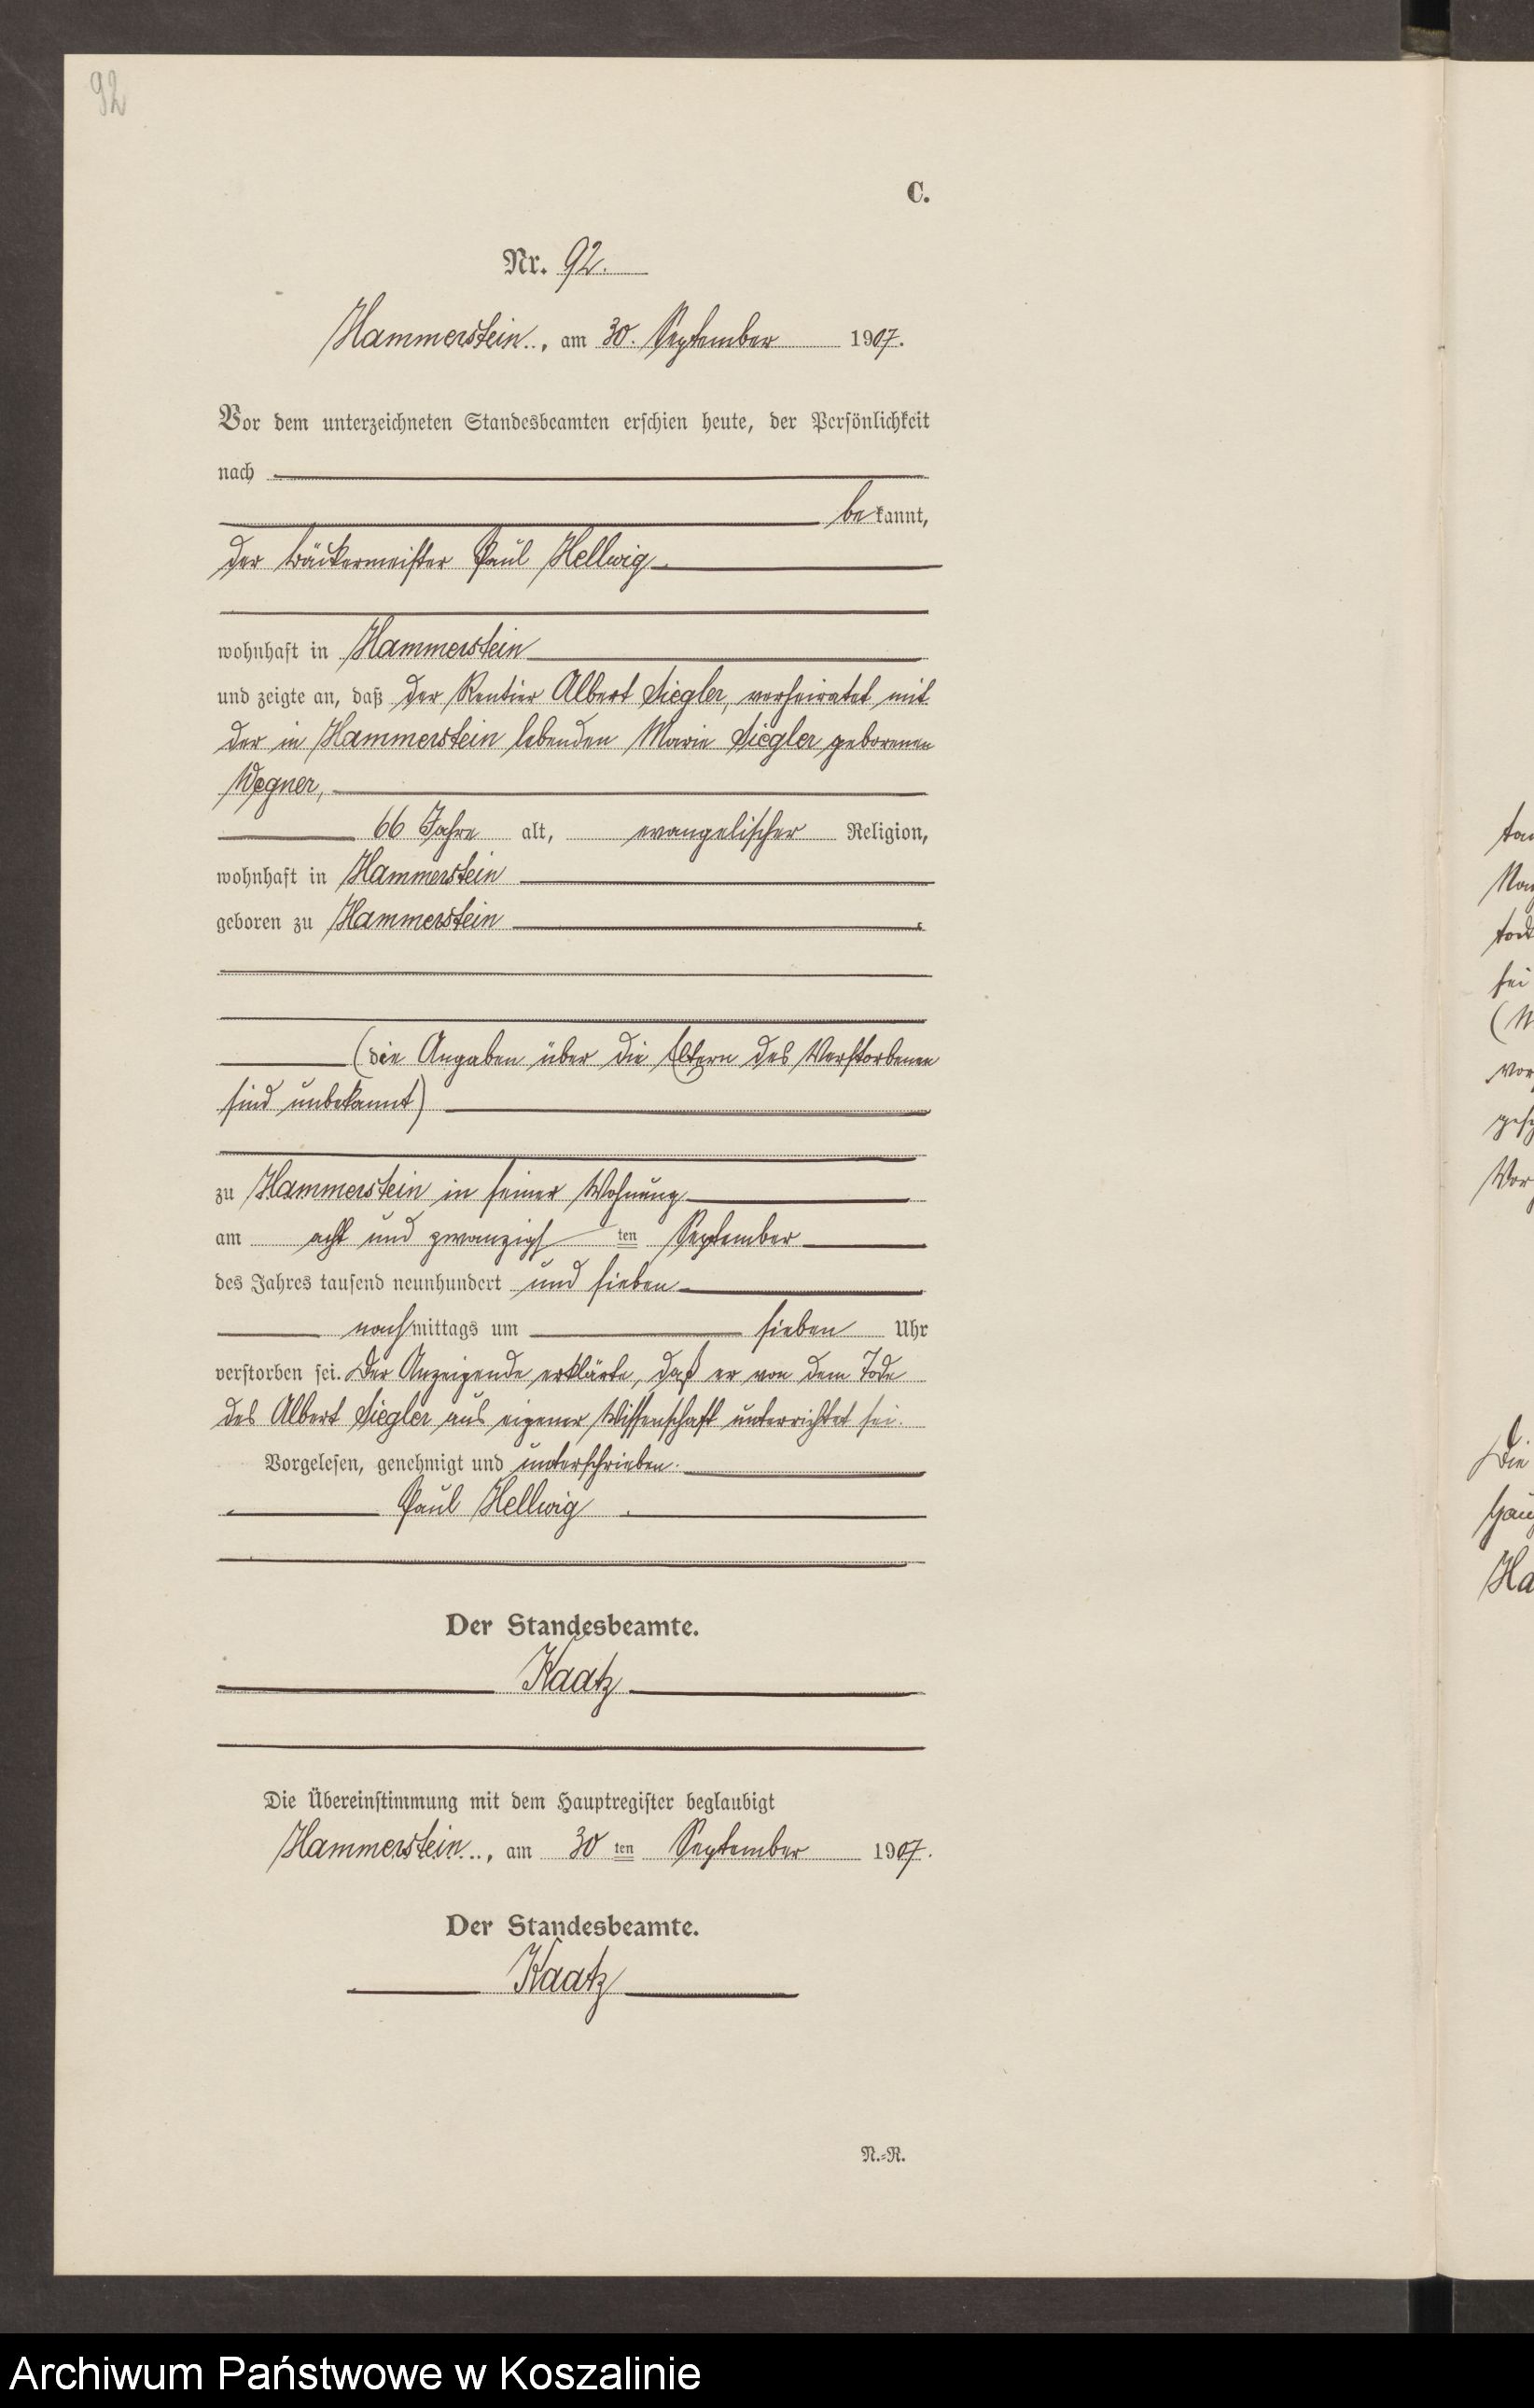 92
C.
Nr. 92.
Hammerstein, am 30. September 1907.
Vor dem unterzeichneten Standesbeamten erschien heute, der Persönlichkeit
nach
bekannt,
der Bäckermeister Paul Hellwig
wohnhaft in Hammerstein
und zeigte an, daß der Rentier Albert Siegler, verheiratet mit
der in Hammerstein lebenden Marie Siegler geborenen
Wegner,
66 Jahre alt, evangelischer Religion,
wohnhaft in Hammerstein
geboren zu Hammerstein
(die Angaben über die Eltern des Verstorbenen
sind unbekannt)
zu Hammerstein in seiner Wohnung
am acht und zwanzigsten September
des Jahres tausend neunhundert und sieben
nachmittags um sieben Uhr
verstorben sei. Der Anzeigende erklärte, daß er von dem Tode
des Albert Siegler aus eigener Wissenschaft unterrichtet sei.
Vorgelesen, genehmigt und unterschrieben.
Paul Hellwig
Der Standesbeamte.
Kaatz
Die Übereinstimmung mit dem Hauptregister beglaubigt
Hammerstein, am 30ten September 1907.
Der Standesbeamte.
Kaatz
N.=R.
Archiwum Państwowe w Koszalinie